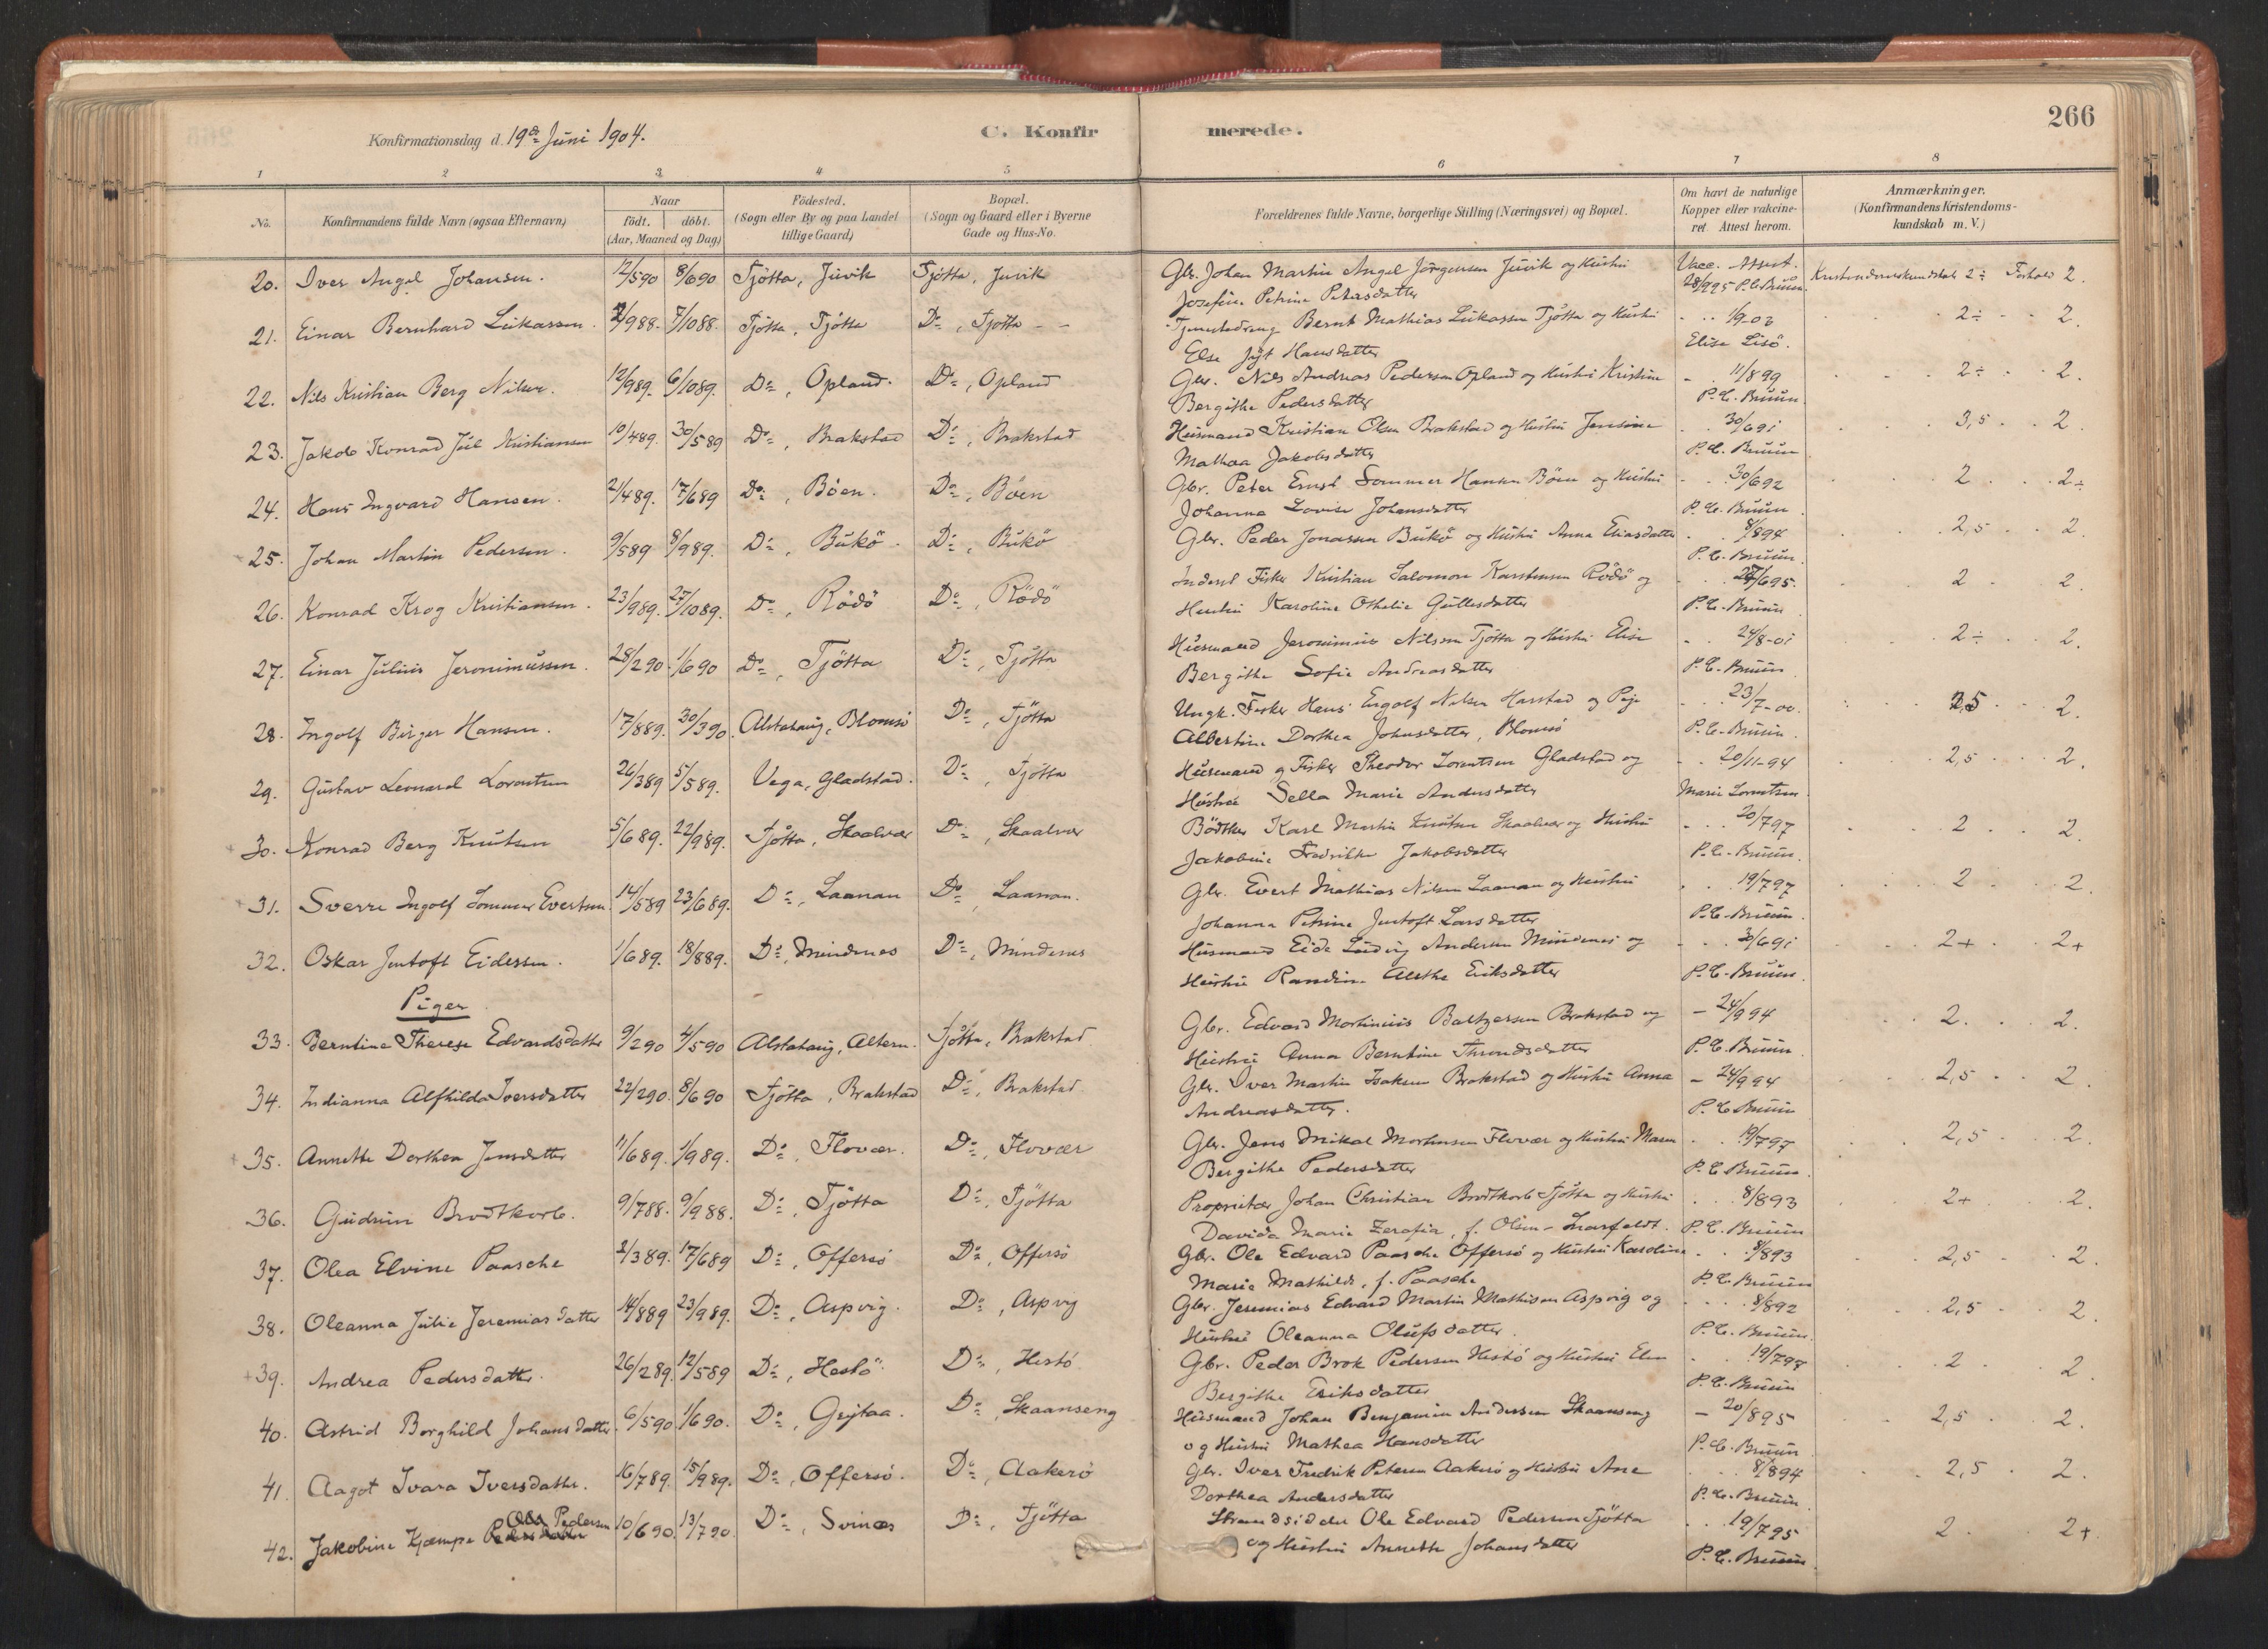 266
Konfirmationsdag d. 19de Juni 1904. C. Konfirmerede.
1 2 3 4 5 6 7 8
No. Konfirmandens fulde Navn (ogsaa Efternavn) Naar født. døbt. (Aar, Maaned og Dag) Fødested. (Sogn eller By og paa Landet tillige Gaard) Bopæl. (Sogn og Gaard eller i Byerne Gade og Hus-No. Forældrenes fulde Navne, borgerlige Stilling (Næringsvei) og Bopæl. Om havt de naturlige Kopper eller vakcineret. Attest herom. Anmærkninger. (Konfirmandens Kristendomskundskab m. V.)
20. Iver Angel Johansen. 12/590 8/690 Tjøtta, Juvik Tjøtta, Juvik Gbr. Johan Martin Angel Jørgensen Juvik og Hustru Vacc. Attest. Kristendomskundskab 2÷ Forhold 2.
Josefine Petrine Petersdatter 28/995 P.C. Bruun
21. Einar Bernhard Lukassen. /988. 7/1088. Tjøtta, Tjøtta Do, Tjøtta Tjenestedreng Bernt Mathias Lukassen Tjøtta og Hustru 1/9-03 2÷ 2.
Else Hansdatter Elise Lisø.
22. Nils Kristian Berg Nilsen. 12/989. 6/1089. Do, Opland. Do, Opland Gbr. Nils Andreas Pedersen Opland og Hustru Kristine 11/899 2÷ 2.
Bergithe Pedersdatter P.C. Bruun.
23. Jakob Konrad Juel Kristiansen 10/489. 30/589 Do, Brakstad Do, Brakstad Husmand Kristian Olsen Brakstad og Hustru Jensine 30/691 3,5 2.
Mathea Jakobsdatter P.C. Bruun
24. Hans Ingvard Hansen. 21/489. 17/689 Do, Bøen. Do, Bøen Gbr. Peter Ernst Sommer Hansen Bøen og Hustru 30/692 2 2÷
Johanna Lovise Johansdatter P.C. Bruun
25. Johan Martin Pedersen. 9/589 8/989. Do, Bukø. Do, Bukø Gbr. Peder Jonassen Bukø og Hustru Anna Eliasdatter 8/894 2,5 2.
P.C. Bruun.
26. Konrad Krog Kristiansen. 23/989. 27/1089. Do, Rødø Do, Rødø Inderst Fisker Kristian Salomon Karstensen Rødø og /695. 2 2.
Hustru Karoline Othelie Gullesdatter P.C. Bruun
27. Einar Julius Jeronimussen. 28/290. 1/690 Do, Tjøtta Do, Tjøtta Husmand Jeronimus Nilssen Tjøtta og Hustru Elise 24/8-01 2÷ 2.
Bergithe Sofie Andreasdatter P.C. Bruun
28. Ingolf Birger Hansen. 17/889. 30/390. Alstahaug, Blomsø Do, Tjøtta Ungk. Fisker Hans Engolf Nilsen Harstad og Pige 23/7-00. 2,5 2.
Albertine Dorthea Johnsdatter, Blomsø P.C. Bruun.
29. Gustav Leonard Lorentsen 26/389 5/589. Vega, Gladstad. Do, Tjøtta Husmand og Fisker Theodor Lorentsen Gladstad og 20/11-94 2,5 2.
Hustru Sella Marie Andersdatter Marie Lorentsen
30. Konrad Berg Knutsen 5/689. 22/989. Tjøtta, Skaalvær Do, Skaalvær Bødtker Karl Martin Knutsen Skaalvær og Hustru 20/797 2 2.
Jakobine Fredrikke Jakobsdatter P.C. Bruun.
31. Sverre Ingolf Sommer Evertsen. 14/589 23/689. Do, Laanan Do, Laanan. Gbr. Evert Mathias Nilsen Laanan og Hustru 19/797 2 2.
Johanna Petrine Jentoft Larsdatter P.C. Bruun.
32. Oskar Jentoft Eidessen. 1/689. 18/889. Do, Mindnes Do, Mindenes Husmand Eide Ludvig Andersen Mindenes og 30/691 2+ 2+
Hustru Randine Alethe Eriksdatter P.C. Bruun.
Piger.
33. Berntine Therese Edvardsdatter 9/290 4/590 Alstahaug, Altern. Tjøtta, Brakstad Gbr. Edvard Mortinius Baltzersen Brakstad og 24/994 2. 2.
Hustru Anna Berntine Throndsdatter P.C. Bruun
34. Indianna Alfhilda Iversdatter 22/290. 8/690 Tjøtta, Brakstad Do, Brakstad Gbr. Iver Martin Isaksen Brakstad og Hustru Anna 24/994 2,5 2.
Andreasdatter. P.C. Bruun
35. Annette Dorthea Jensdatter 11/689. 1/989. Do, Flovær. Do, Flovær Gbr. Jens Mikal Mortensen Flovær og Hustru Maren 19/797 2,5 2.
Bergithe Pedersdatter P.C. Bruun.
36. Gudrun Brodtkorb. 9/788. 9/988. Do, Tjøtta Do, Tjøtta Proprietær Johan Christian Brodtkorb Tjøtta og Hustru 8/893 2+ 2.
Davida Marie Zerafia, f. Olsen P.C. Bruun
37. Olea Elvine Paasche 2/389. 17/689 Do, Offersø Do, Offersø Gbr. Ole Edvard Paasche Offersø og Hustru Karoline 8/893 2,5 2.
Marie Mathilde, f. Paasche P.C. Bruun
38. Oleanna Julie Jeremiasdatter 14/889 23/989. Do, Aspvig. Do, Aspvig Gbr. Jeremias Edvard Martin Mathisen Aspvig og 8/892 2,5 2.
Hustru Oleanna Olufsdatter. P.C. Bruun.
39. Andrea Pedersdatter. 26/289. 12/589 Do, Hestø Do, Hestø Gbr. Peder Brok Pedersen Hestø og Hustru Elen 19/798 2 2.
Bergithe Eriksdatter P.C. Bruun
40. Astrid Borghild Johansdatter. 6/590 1/690. Do, Grytaa. Do, Skaanseng Husmand Johan Benjamin Andersen Skaanseng 20/895 2,5 2.
og Hustru Mathea Hansdatter P.C. Bruun
41. Aagot Ivara Iversdatter. 16/789. 15/989. Do, Offersø. Do, Aakerø Gbr. Iver Fredrik Petersen Aakerø og Hustru Ane 8/894 2,5 2.
Dorthea Andersdatter P.C. Bruun.
42. Jakobine Kjæmpe Pedersen 10/690. 13/790. Do, Svines Do, Tjøtta Strandsidder Ole Edvard Pedersen Tjøtta 19/795 2. 2+
og Hustru Annette Johansdatter P.C. Bruun.